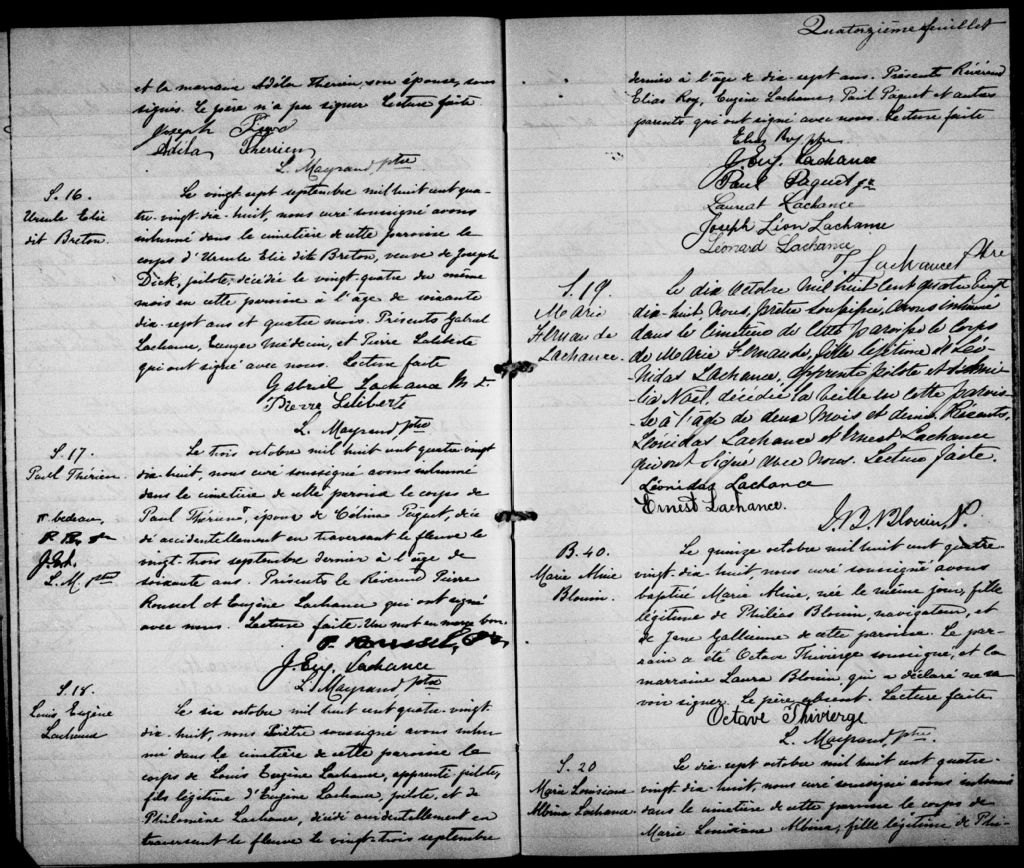 et la marraine Adèla Therrien, son épouse, sous
signés. Le père n'a pu signer Lecture faite
Joseph
Adèla Therrien
L. Mayrand, ptre
S. 16.
Ursule Elie
dit Breton.
Le vingt-sept septembre mil huit cent qua-
tre-vingt dix-huit, nous curé soussigné avons
inhumé dans le cimetière de cette paroisse le
corps d'Ursule Elie dite Breton, veuve de Joseph
Dick, pilote, décédée le vingt-quatre du même
mois en cette paroisse à l'âge de soixante
dix-sept ans et quatre mois. Présents Gabriel
Lachance, médecin, et Pierre Laliberté
qui ont signé avec nous. Lecture faite
Gabriel Lachance M.D.
Pierre Laliberté
L. Mayrand ptre
S. 17.
Paul Thérien.
π bedeau,
P. R. ptre
J. E. L.
L. M. ptre
Le trois octobre mil huit cent quatre vingt
dix-huit, nous curé soussigné avons inhumé
dans le cimetière de cette paroisse le corps de
Paul Thérien π, époux de Célina Paquet, décé-
dé accidentellement en traversant le fleuve le
vingt-trois septembre dernier à l'âge de
soixante ans. Présents le Révérend Pierre
Roussel et Eugène Lachance qui ont signé
avec nous. Lecture faite. Un mot en marge bon.
P. Roussel, Ptre
J. Eug. Lachance
L. Mayrand ptre
S. 18.
Louis Eugène
Lachance
Le six octobre mil huit cent quatre-vingt
dix-huit, nous Prêtre soussigné avons inhu-
mé dans le cimetière de cette paroisse le
corps de Louis Eugène Lachance, apprenti pilote,
fils légitime d'Eugène Lachance, pilote, et de
Philomène Lachance, décédé accidentellement en
traversant le fleuve le vingt-trois septembre
Quatorzième feuillet
dernier à l'âge de dix-sept ans. Présents Révérend
Elias Roy, Eugène Lachance, Paul Paquet et autres
parents qui ont signé avec nous. Lecture faite
Elias Roy ptre
J. Eug. Lachance
Paul Paquet jr
Laureat Lachance
Joseph Léon Lachance
Léonard Lachance
J. Lachance Ptre
S. 19.
Marie
Fernande
Lachance.
Le dix Octobre mil huit cent quatre vingt
dix-huit, Nous, prêtre soussigné, avons inhumé
dans le Cimetière de cette paroisse le corps
de Marie Fernande, fille légitime de Léo-
nidas Lachance, apprenti pilote et d'Amé-
lia Noël, décédée la veille en cette parois-
se à l'âge de deux mois et demi. Présents,
Léonidas Lachance et Ernest Lachance
qui ont signé avec Nous. Lecture faite.
Léonidas Lachance
Ernest Lachance.
J. B. N. Blouin, P.
B. 40.
Marie Aline
Blouin.
Le quinze octobre mil huit cent quatre
vingt-dix-huit, nous curé soussigné avons
baptisé Marie Aline, née le même jour, fille
légitime de Philéas Blouin, navigateur, et
de Jane Gallienne de cette paroisse. Le par-
rain a été Octave Thivierge soussigné, et la
marraine Laura Blouin, qui a déclaré ne sa-
voir signer. Le père absent. Lecture faite
Octave Thivierge
L. Mayrand, ptre.
S. 20
Marie Louisiane
Albina Lachance
Le dix-sept octobre mil huit cent quatre-
vingt-dix-huit, nous curé soussigné avons inhumé
dans le cimetière de cette paroisse le corps de
Marie Louisiane Albina, fille légitime de Phi-